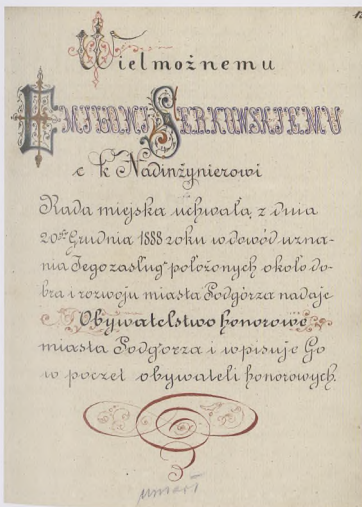 Wielmożnemu
Emilowi Serkowskiemu
c k Nadinżynierowi
Rada miejska uchwałą z dnia
20go Grudnia 1888 roku w dowód uzna-
nia Jego zasług położonych około do-
bra i rozwoju miasta Podgórza nadaje
Obywatelstwo honorowe
miasta Podgórza i wpisuje Go
w poczet obywateli honorowych.
umarł